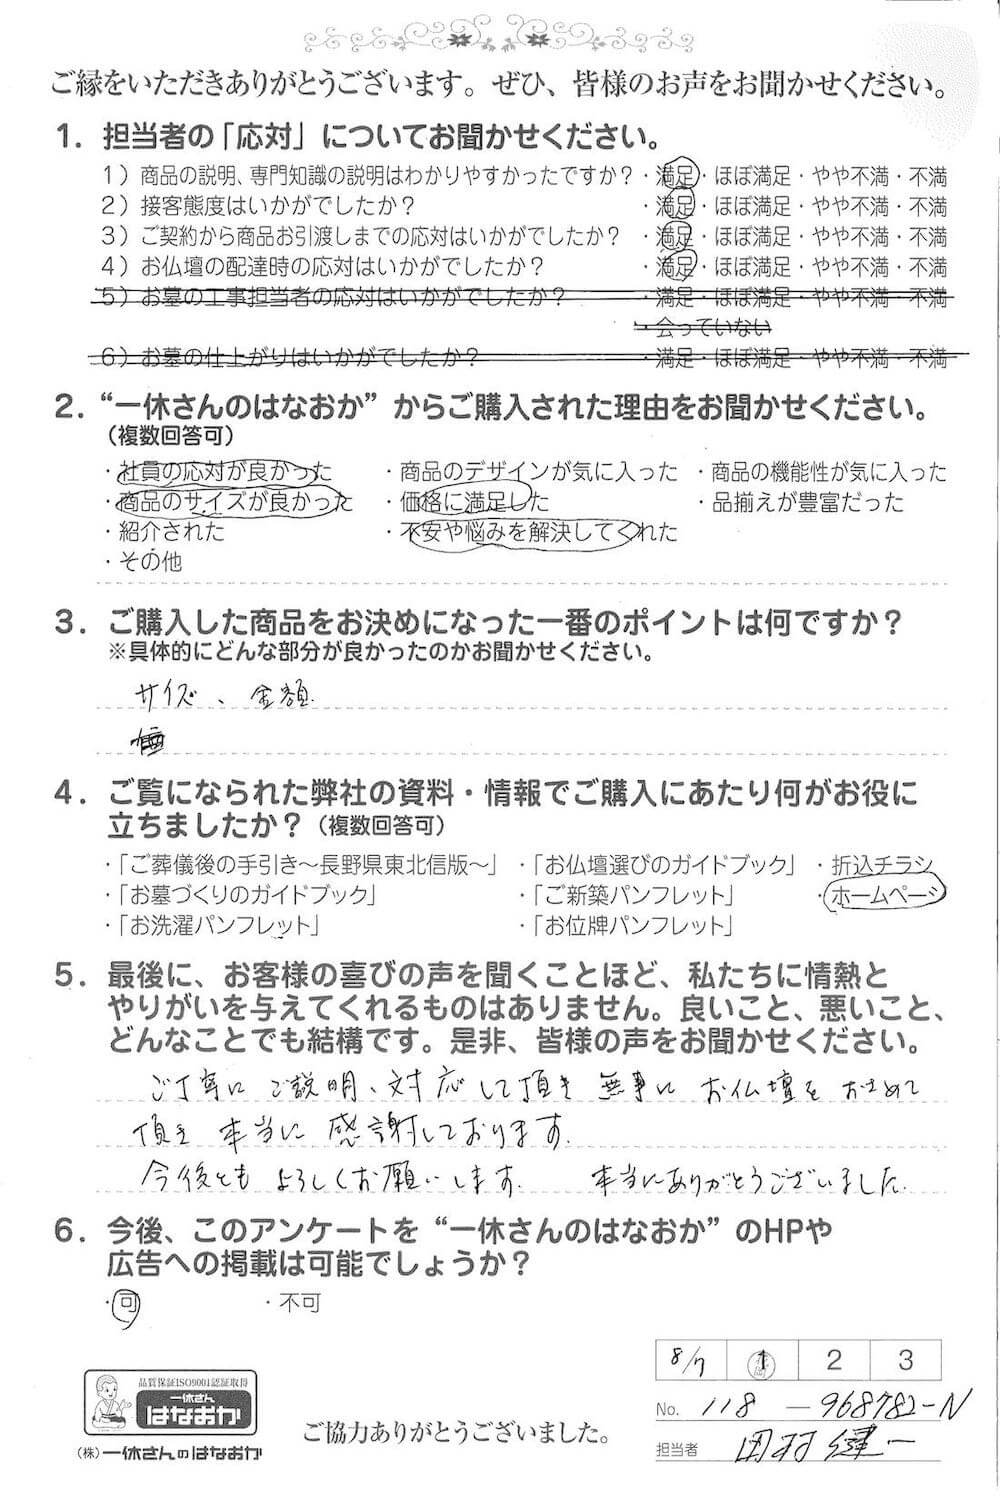 ご縁をいただきありがとうございます。ぜひ、皆様のお声をお聞かせください。
1. 担当者の「応対」についてお聞かせください。
1）商品の説明、専門知識の説明はわかりやすかったですか？・満足・ほぼ満足・やや不満・不満
2）接客態度はいかがでしたか？ ・満足・ほぼ満足・やや不満・不満
3）ご契約から商品お引渡しまでの応対はいかがでしたか？ ・満足・ほぼ満足・やや不満・不満
4）お仏壇の配達時の応対はいかがでしたか？ ・満足・ほぼ満足・やや不満・不満
5）お墓の工事担当者の応対はいかがでしたか？ ・満足・ほぼ満足・やや不満・不満
・会っていない
6）お墓の仕上がりはいかがでしたか？ ・満足・ほぼ満足・やや不満・不満
2. “一休さんのはなおか”からご購入された理由をお聞かせください。
（複数回答可）
・社員の応対が良かった ・商品のデザインが気に入った ・商品の機能性が気に入った
・商品のサイズが良かった ・価格に満足した ・品揃えが豊富だった
・紹介された ・不安や悩みを解決してくれた
・その他
3. ご購入した商品をお決めになった一番のポイントは何ですか？
※具体的にどんな部分が良かったのかお聞かせください。
サイズ、金額
4. ご覧になられた弊社の資料・情報でご購入にあたり何がお役に
立ちましたか？（複数回答可）
・「ご葬儀後の手引き～長野県東北信版～」 ・「お仏壇選びのガイドブック」 ・折込チラシ
・「お墓づくりのガイドブック」 ・「ご新築パンフレット」 ・ホームページ
・「お洗濯パンフレット」 ・「お位牌パンフレット」
5. 最後に、お客様の喜びの声を聞くことほど、私たちに情熱と
やりがいを与えてくれるものはありません。良いこと、悪いこと、
どんなことでも結構です。是非、皆様の声をお聞かせください。
ご丁寧にご説明、対応して頂き 無事に お仏壇を おさめて
頂き 本当に 感謝しております.
今後とも よろしくお願いします. 本当にありがとうございました.
6. 今後、このアンケートを“一休さんのはなおか”のHPや
広告への掲載は可能でしょうか？
・可 ・不可
8/7 1 2 3
品質保証ISO9001認証取得
一休さん
はなおか
（株）一休さんのはなおか
ご協力ありがとうございました。
No. 118 — 968782-N
担当者 田村健一